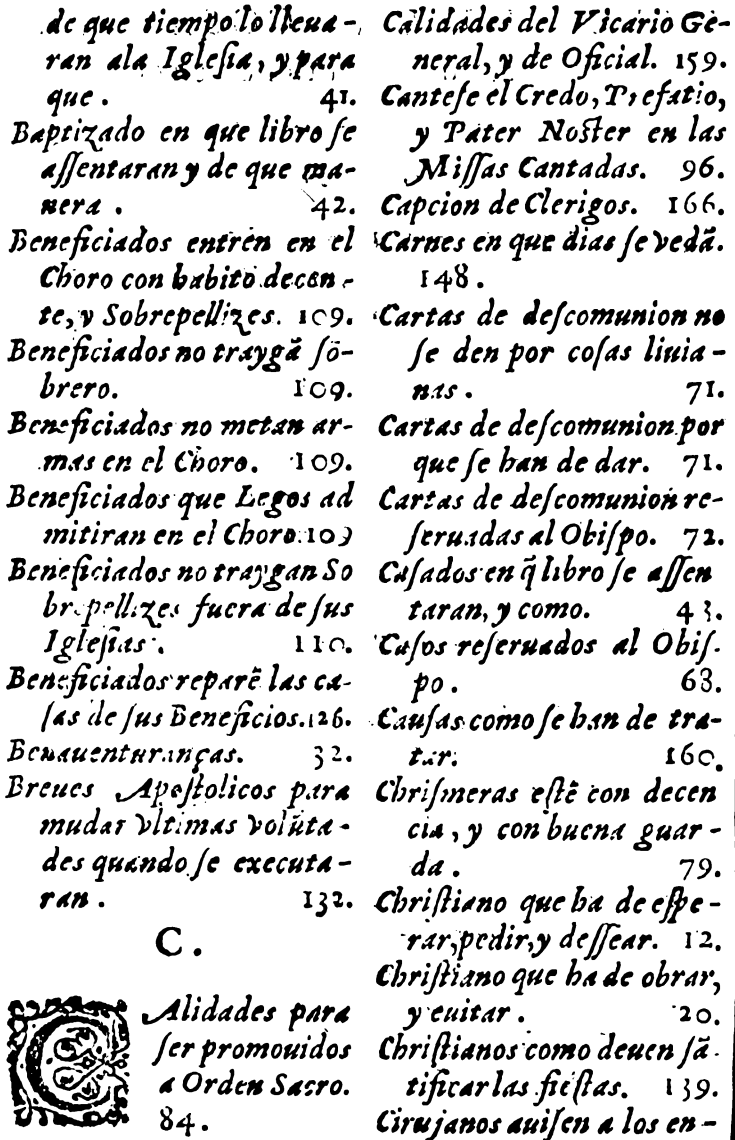 de que tiempo lo lleua-
ran ala Iglesia, y para
que. 41.
Baptizado en que libro se
assentaran y de que ma-
nera. 42.
Beneficiados entren en el
Choro con habito decen-
te, y Sobrepellizes. 109.
Beneficiados no traygã sõ-
brero. 109.
Beneficiados no metan ar-
mas en el Choro. 109.
Beneficiados que Legos ad
mitiran en el Choro. 109
Beneficiados no traygan So
brepellizes fuera de sus
Iglesias. 110.
Beneficiados reparẽ las ca-
sas de sus Beneficios. 126.
Benauenturanças. 32.
Breues Apostolicos para
mudar vltimas volũta-
des quando se executa-
ran. 132.
C.
CAlidades para
ser promouidos
a Orden Sacro.
84.
Calidades del Vicario Ge-
neral, y de Oficial. 159.
Cantese el Credo, Prefatio,
y Pater Noster en las
Missas Cantadas. 96.
Capcion de Clerigos. 166.
Carnes en que dias se vedã.
148.
Cartas de descomunion no
se den por cosas liuia-
nas. 71.
Cartas de descomunion por
que se han de dar. 71.
Cartas de descomunion re-
seruadas al Obispo. 72.
Casados en q̃ libro se assen
taran, y como. 43.
Casos reseruados al Obis-
po. 68.
Causas como se han de tra-
tar. 160.
Chrismeras estẽ con decen
cia, y con buena guar-
da. 79.
Christiano que ha de espe-
rar, pedir, y dessear. 12.
Christiano que ha de obrar,
y euitar. 20.
Christianos como deuen sã-
tificar las fiestas. 139.
Cirujanos auisen a los en-